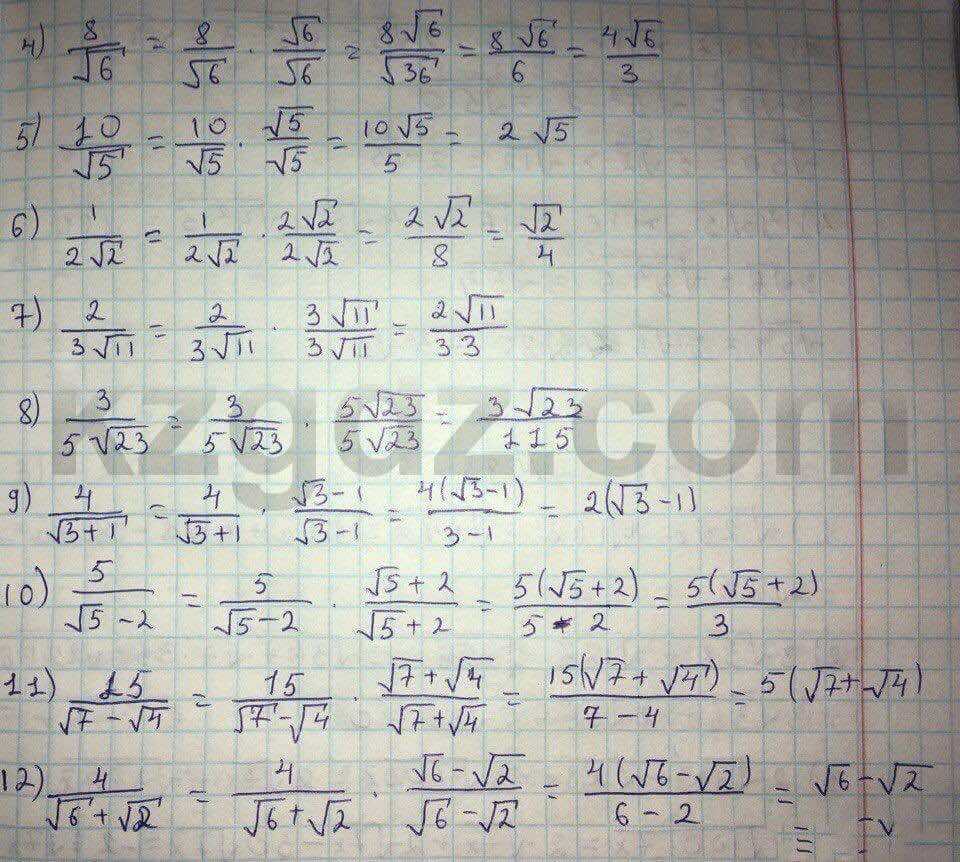 4) 8/√6 = 8/√6 · √6/√6 = 8√6/√36 = 8√6/6 = 4√6/3
5) 10/√5 = 10/√5 · √5/√5 = 10√5/5 = 2√5
6) 1/2√2 = 1/2√2 · 2√2/2√2 = 2√2/8 = √2/4
7) 2/3√11 = 2/3√11 · 3√11/3√11 = 2√11/33
8) 3/5√23 = 3/5√23 · 5√23/5√23 = 3√23/115
kzgdz.com
9) 4/√3+1 = 4/√3+1 · √3-1/√3-1 = 4(√3-1)/3-1 = 2(√3-1)
10) 5/√5-2 = 5/√5-2 · √5+2/√5+2 = 5(√5+2)/5-2 = 5(√5+2)/3
11) 15/√7-√4 = 15/√7-√4 · √7+√4/√7+√4 = 15(√7+√4)/7-4 = 5(√7+√4)
12) 4/√6+√2 = 4/√6+√2 · √6-√2/√6-√2 = 4(√6-√2)/6-2 = √6-√2